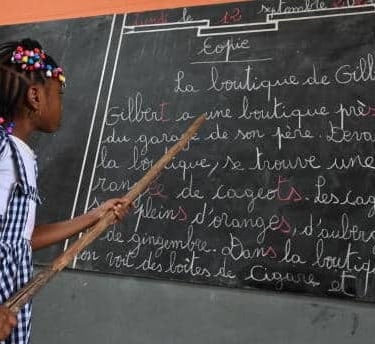 Lundi le 12 septembre
Copie
La boutique de Gilb
Gilbert a une boutique près
du garage de son père. Deva
la boutique, se trouve une
rangée de cageots. Les cag
pleins d'oranges, d'auberg
de gingembre. Dans la boutiq
on voit des boîtes de cigare et